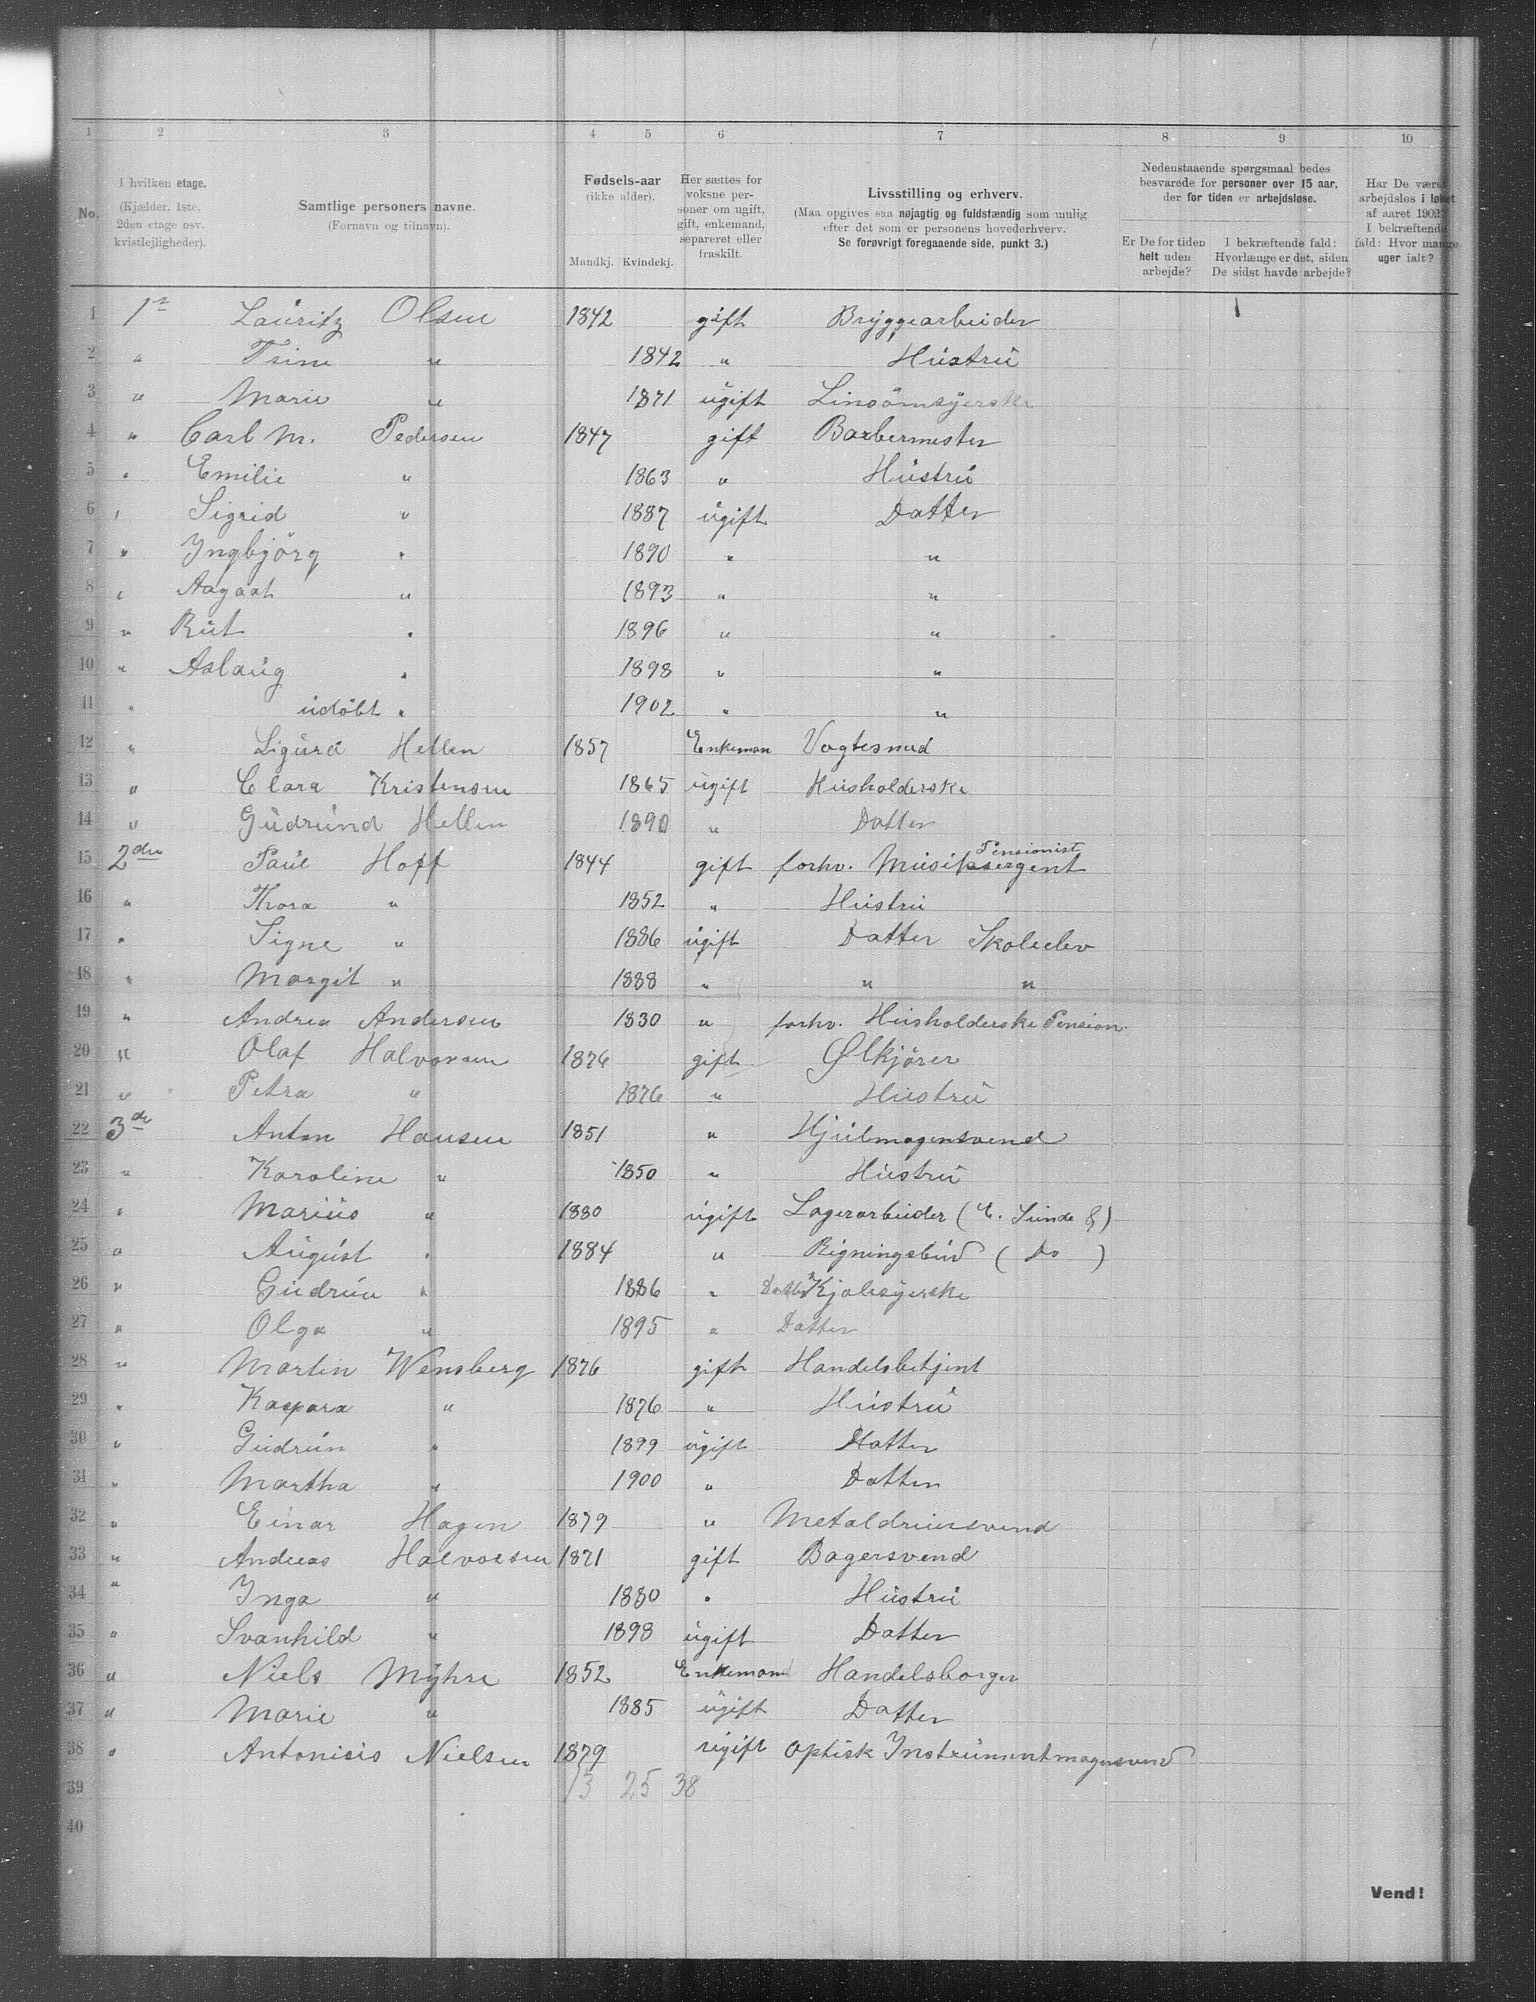 1 2 3 4 5 6 7 8 9 10
No.
I hvilken etage.
(Kjælder, 1ste,
2den etage osv.
kvistleiligheder).
Samtlige personers navne.
(Fornavn og tilnavn).
Fødsels-aar
(ikke alder).
Mandkj. Kvindekj.
Her sættes for
voksne per-
soner om ugift,
gift, enkemand,
separeret eller
fraskilt.
Livsstilling og erhverv.
(Maa opgives saa nøjagtig og fuldstændig som mulig
efter det som er personens hovederhverv.
Se forøvrigt foregaaende side, punkt 3.)
Nedenstaaende spørgsmaal bedes
besvarede for personer over 15 aar,
der for tiden er arbejdsløse.
Er De for tiden
helt uden
arbejde?
I bekræftende fald:
Hvorlænge er det, siden
De sidst havde arbejde?
Har De været
arbejdsløs i løbet
af aaret 1902?
I bekræftende
fald: Hvor mange
uger ialt?
1 1ste Lauritz Olsen 1842 gift Bryggearbeider
2 " Trine " 1842 " Hustru
3 " Marie " 1871 ugift Linsömsyerske
4 " Carl M. Pedersen 1847 gift Barbermester
5 " Emilie " 1863 " Hustru
6 " Sigrid " 1887 ugift Datter
7 " Yngbjörg " 1890 " "
8 " Aagaat " 1893 " "
9 " Rut " 1896 " "
10 " Aslaug " 1898 " "
11 " udöbt " 1902 " "
12 " Sigurd Hellen 1857 Enkeman
13 " Clara Kristensen 1865 ugift Husholderske
14 " Gudrund Hellen 1890 " Datter
15 2den Paul Hoff 1844 gift forhv. Musiksergent Pensionist
16 " Thora " 1852 " Hustru
17 " Signe " 1886 ugift Datter Skoleelev
18 " Margit " 1888 " " "
19 " Andrea Andersen 1830 " forhv. Husholderske Pension
20 " Olaf Halvorsen 1876 gift Ølkjörer
21 " Petra " 1876 " Hustru
22 3de Anton Hansen 1851 " Hjulmagersvend
23 " Karoline " 1850 " Hustru
24 " Marius " 1880 ugift Lagerarbeider (E. Sunde &)
25 " August " 1884 " Rigningsbud ( Do )
26 " Gudrun " 1886 " Datter Kjolesyerske
27 " Olga " 1895 " Datter
28 " Martin Wensberg 1876 gift Handelsbetjent
29 " Kaspara " 1876 " Hustru
30 " Gudrun " 1899 ugift Datter
31 " Martha " 1900 " Datter
32 " Einar Hagen 1879 " Metaldreiersvend
33 " Andreas Halvorsen 1871 gift Bagersvend
34 " Inga " 1880 " Hustru
35 " Svanhild " 1898 ugift Datter
36 " Niels Myhre 1852 Enkemand Handelsborger
37 " Marie " 1885 ugift Datter
38 " Antonius Nielsen 1879 ugift optisk Instrumentmagersvend
39 13 25 38
40
Vend!